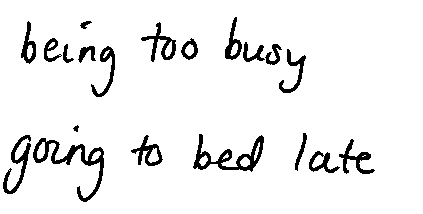 being too busy
going to bed late